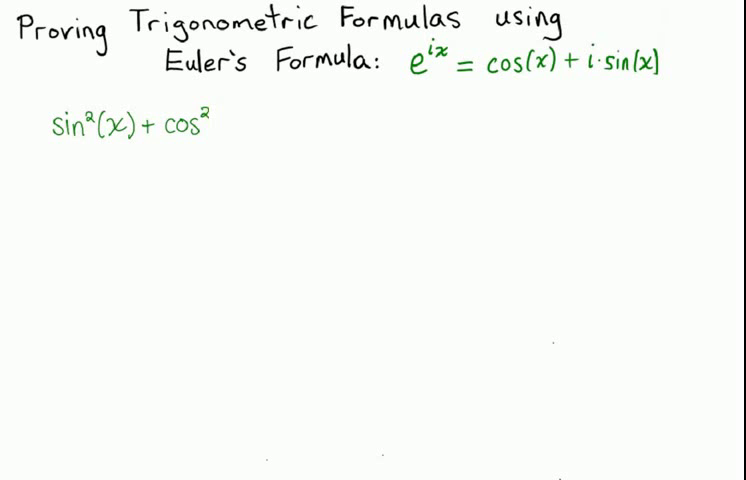 Proving Trigonometric Formulas using
Euler's Formula: e^{ix} = cos(x) + i·sin(x)
sin²(x) + cos²